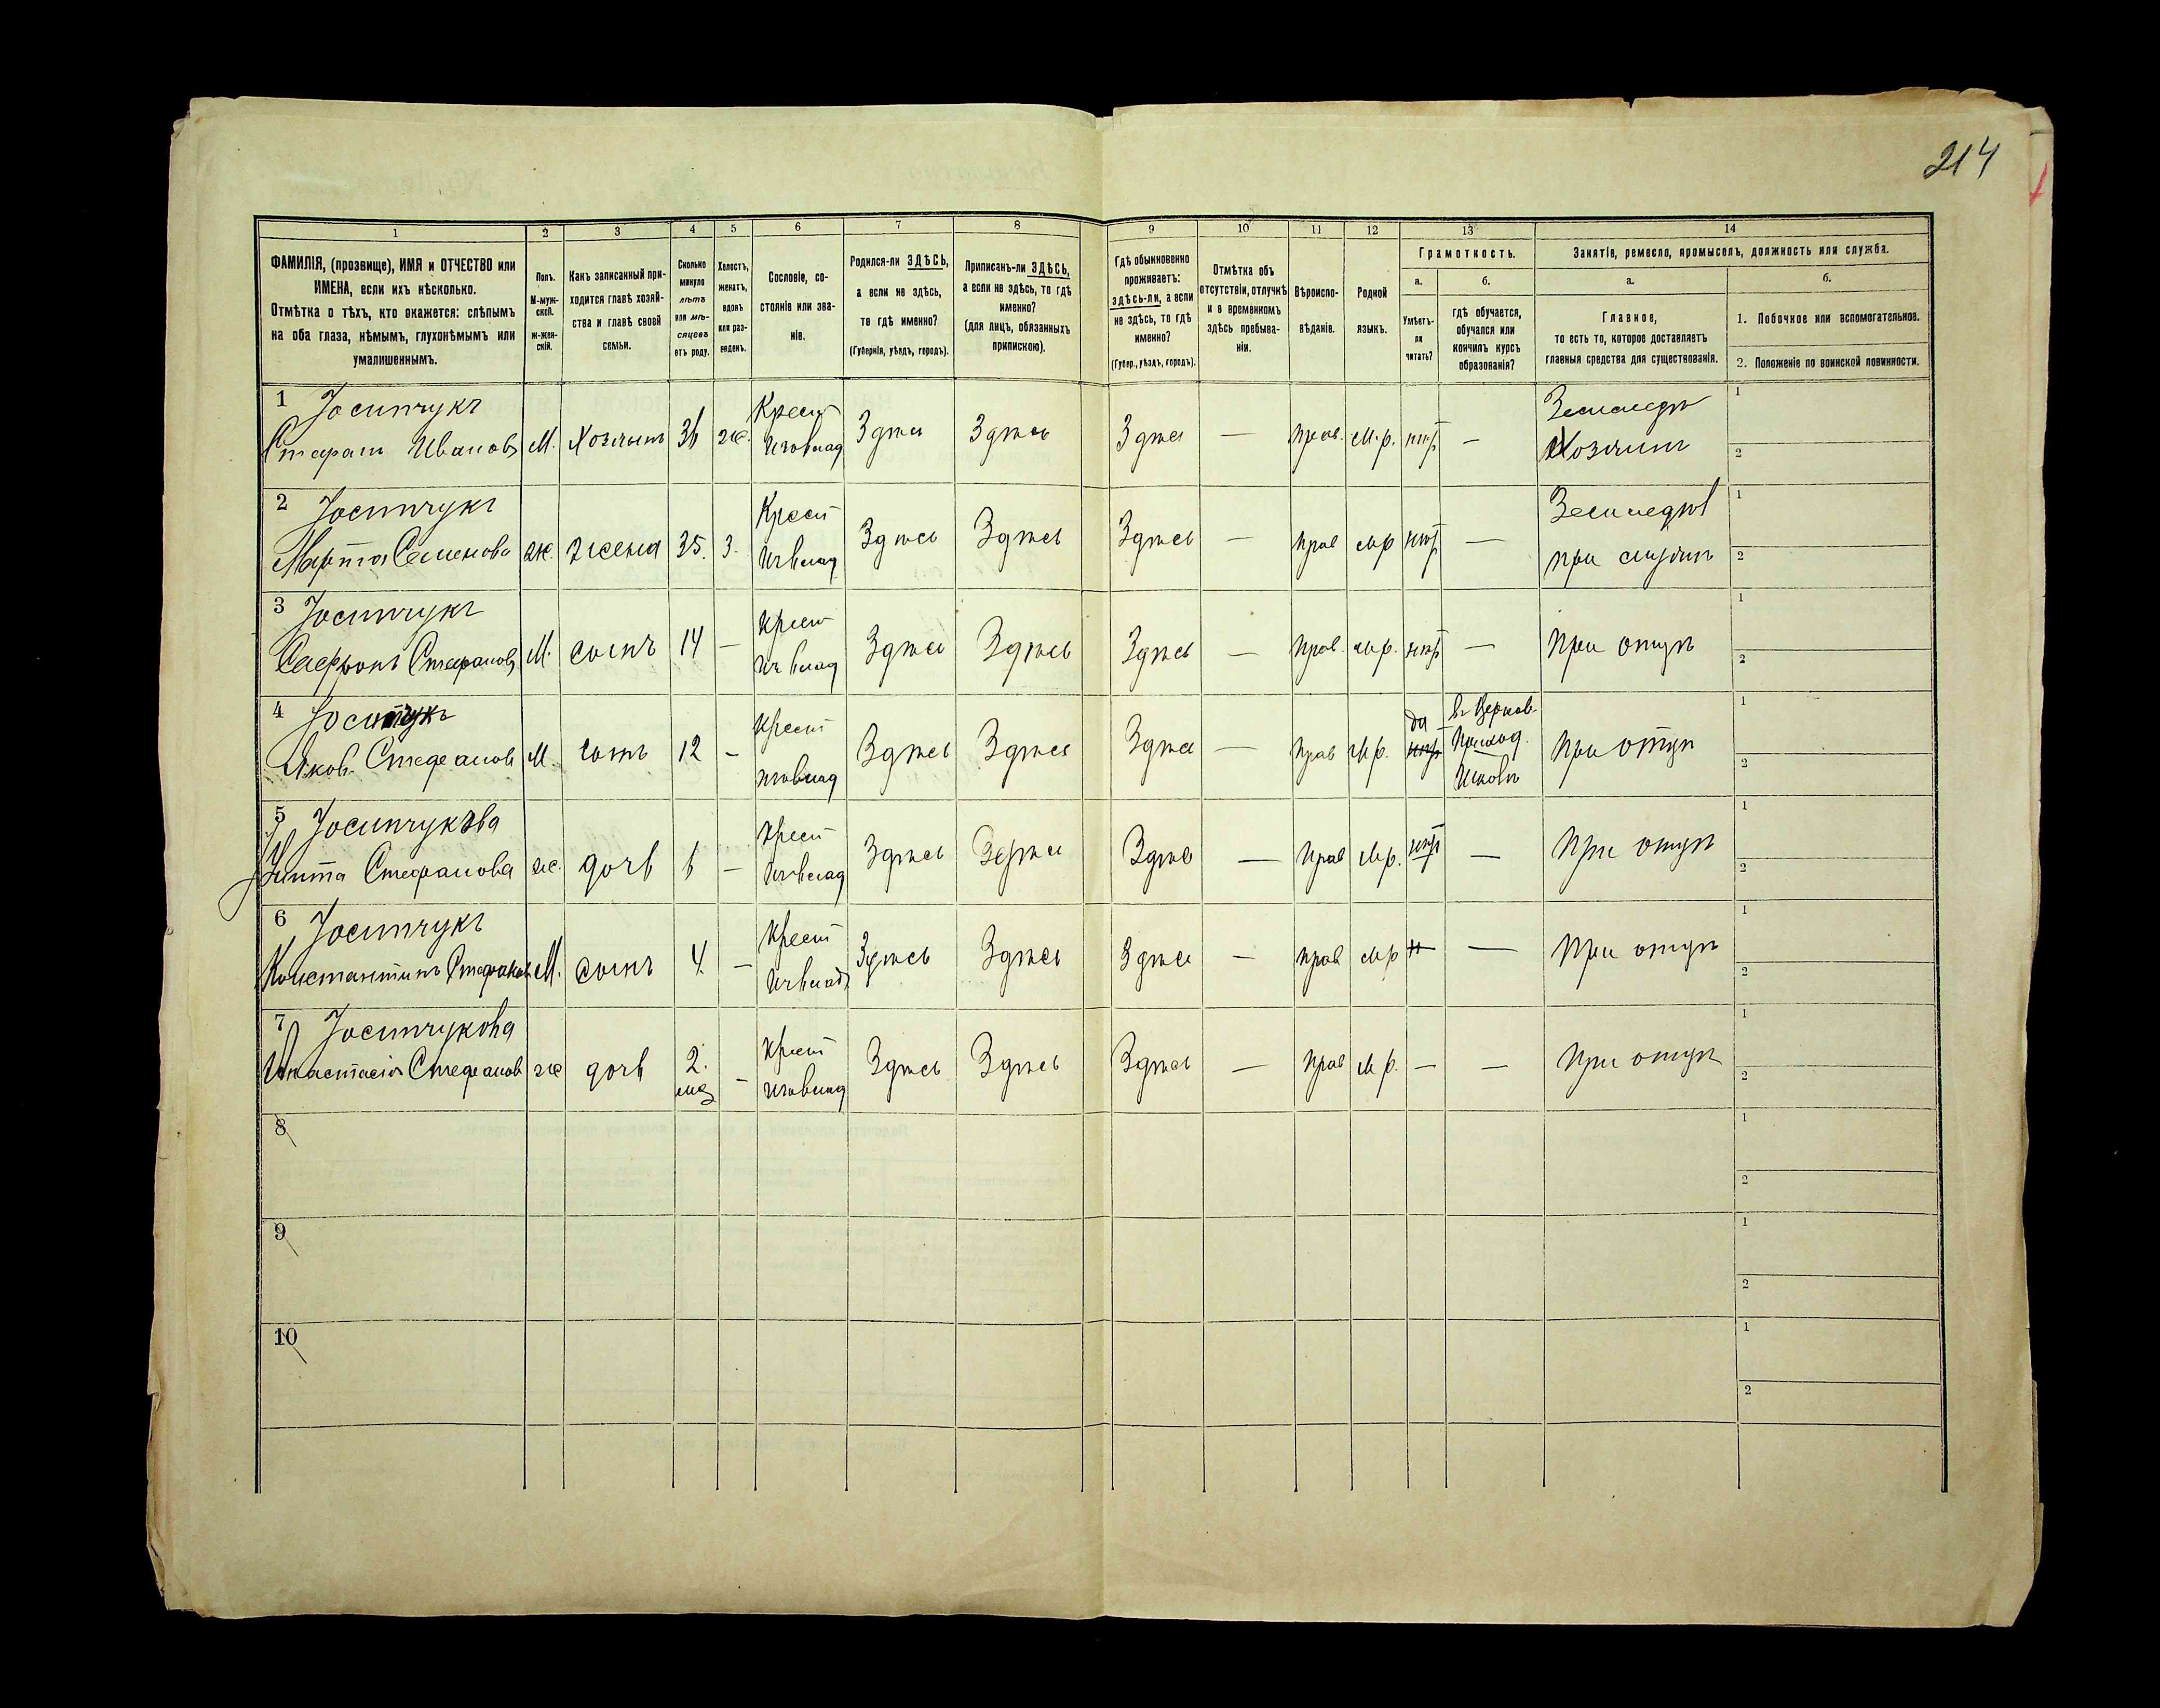 214
1 2 3 4 5 6 7 8 9 10 11 12 13 14
ФАМИЛІЯ, (прозвище), ИМЯ и ОТЧЕСТВО или
ИМЕНА, если ихъ нѣсколько.
Отмѣтка о тѣхъ, кто окажется: слѣпымъ
на оба глаза, нѣмымъ, глухонѣмымъ или
умалишеннымъ.
Полъ.
М-муж-
ской.
ж-жен-
скій.
Какъ записанный при-
ходится главѣ хозяй-
ства и главѣ своей
семьи.
Сколько
минуло
лѣтъ
или мѣ-
сяцевъ
отъ роду.
Холостъ,
женатъ,
вдовъ
или раз-
веденъ.
Сословіе, со-
стояніе или зва-
ніе.
Родился-ли ЗДѢСЬ,
а если не здѣсь,
то гдѣ именно?
(Губернія, уѣздъ, городъ).
Приписанъ-ли ЗДѢСЬ,
а если не здѣсь, то гдѣ
именно?
(для лицъ, обязанныхъ
припискою).
Гдѣ обыкновенно
проживаетъ:
здѣсь-ли, а если
не здѣсь, то гдѣ
именно?
(Губер., уѣздъ, городъ).
Отмѣтка объ
отсутствіи, отлучкѣ
и о временномъ
здѣсь пребыва-
ніи.
Вѣроиспо-
вѣданіе.
Родной
языкъ.
Грамотность.
а.
Умѣетъ-
ли
читать?
б.
гдѣ обучается,
обучался или
кончилъ курсъ
образованія?
Занятіе, ремесло, промыселъ, должность или служба.
а.
Главное,
то есть то, которое доставляетъ
главныя средства для существованія.
б.
1. Побочное или вспомогательное.
2. Положеніе по воинской повинности.
1 Іосипчукъ Крест 1
Стефанъ Ивановъ М. Хозяинъ 36 ж. Здѣсь Здѣсь Здѣсь — прав. м.р. нѣт — Хозяинъ 2
2 Іосипчукъ Крест 1
Марта Семенова ж. жена 35. з. Здѣсь Здѣсь Здѣсь — прав м р нѣт — при 2
3 Іосипчукъ Крест 1
Стефановъ М. сынъ 14 — Здѣсь Здѣсь Здѣсь — прав. м.р. нѣт — При отцѣ 2
4 Іосипчукъ Крест да въ Церков. 1
Яковъ Стефановъ М. сынъ 12 — Здѣсь Здѣсь Здѣсь — прав м.р. нѣт Приход. При отцѣ 2
Школѣ
5 Іосипчукова Крест 1
Стефанова ж. дочь 6 — Здѣсь Здѣсь Здѣсь — прав м.р. нѣт — При отцѣ 2
6 Іосипчукъ Крест 1
Константинъ Стефановъ М. сынъ 4. — Здѣсь Здѣсь Здѣсь — прав м р н — При отцѣ 2
7 Іосипчукова Крест 1
Анастасія Стефанов ж дочь 2. мѣ — Здѣсь Здѣсь Здѣсь — прав м р. — — При отцѣ 2
8 1
2
9 1
2
10 1
2